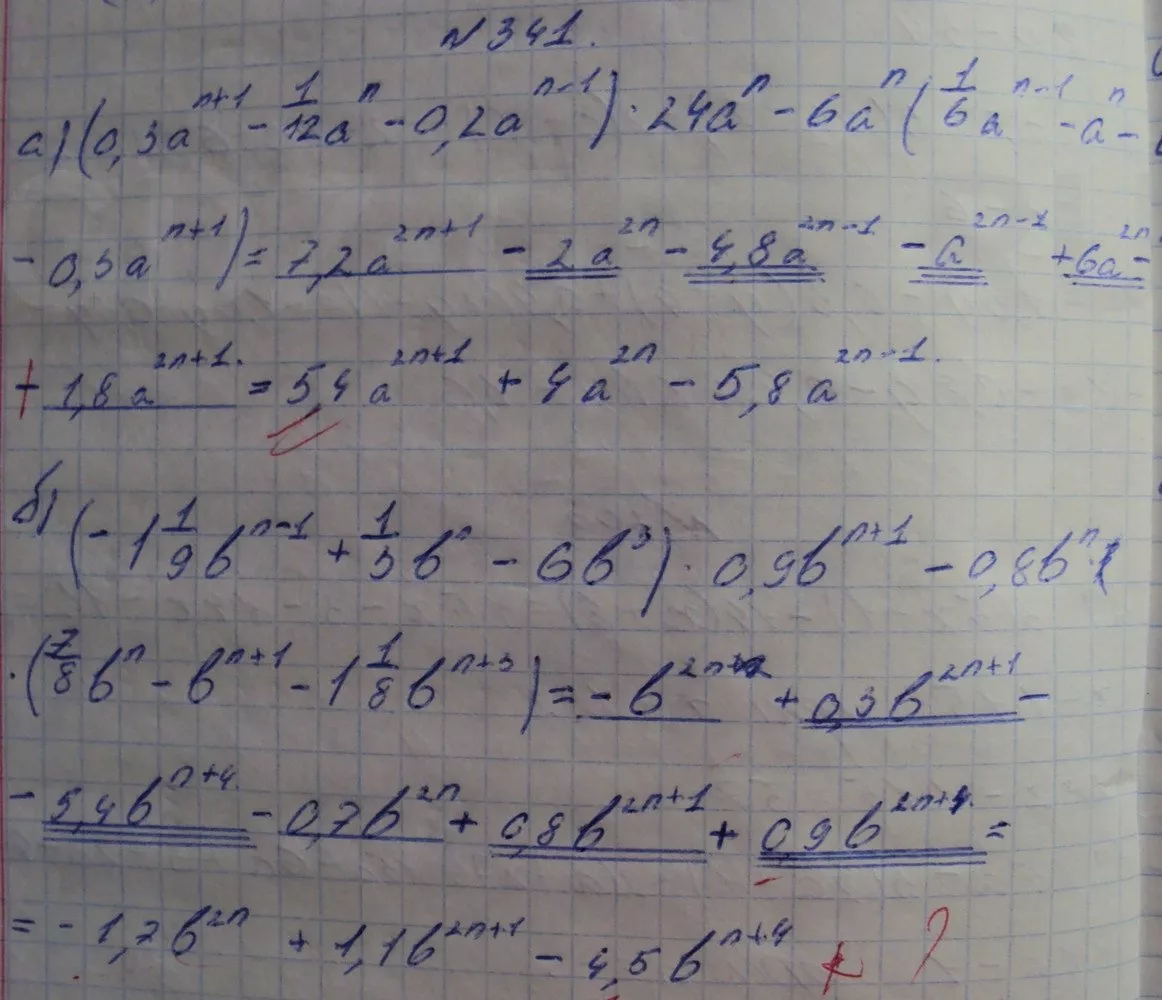 N 341.
а) (0,3a^{n+1} - \frac{1}{12}a^{n} - 0,2a^{n-1}) · 24a^{n} - 6a^{n} (\frac{1}{6}a^{n-1} - a^{n} -
- 0,3a^{n+1}) = 7,2a^{2n+1} - 2a^{2n} - 4,8a^{2n-1} - a^{2n-1} + 6a^{2n}
+ 1,8a^{2n+1} = 5,4a^{2n+1} + 4a^{2n} - 5,8a^{2n-1}.
б) (-1\frac{1}{9}b^{n-1} + \frac{1}{3}b^{n} - 6b^{3}) · 0,9b^{n+1} - 0,8b^{n} ·
· (\frac{7}{8}b^{n} - b^{n+1} - 1\frac{1}{8}b^{n+3}) = - b^{2n} + 0,3b^{2n+1} -
- 5,4b^{n+4} - 0,7b^{2n} + 0,8b^{2n+1} + 0,9b^{2n+4} =
= - 1,7b^{2n} + 1,1b^{2n+1} - 4,5b^{n+4} ?